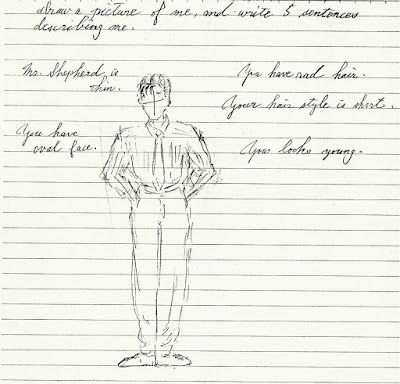 Draw a picture of me, and write 5 sentences
describing me.
Mr. Shepherd is
thin.
You have rad hair.
Your hair style is short.
You have
oval face.
You looks young.